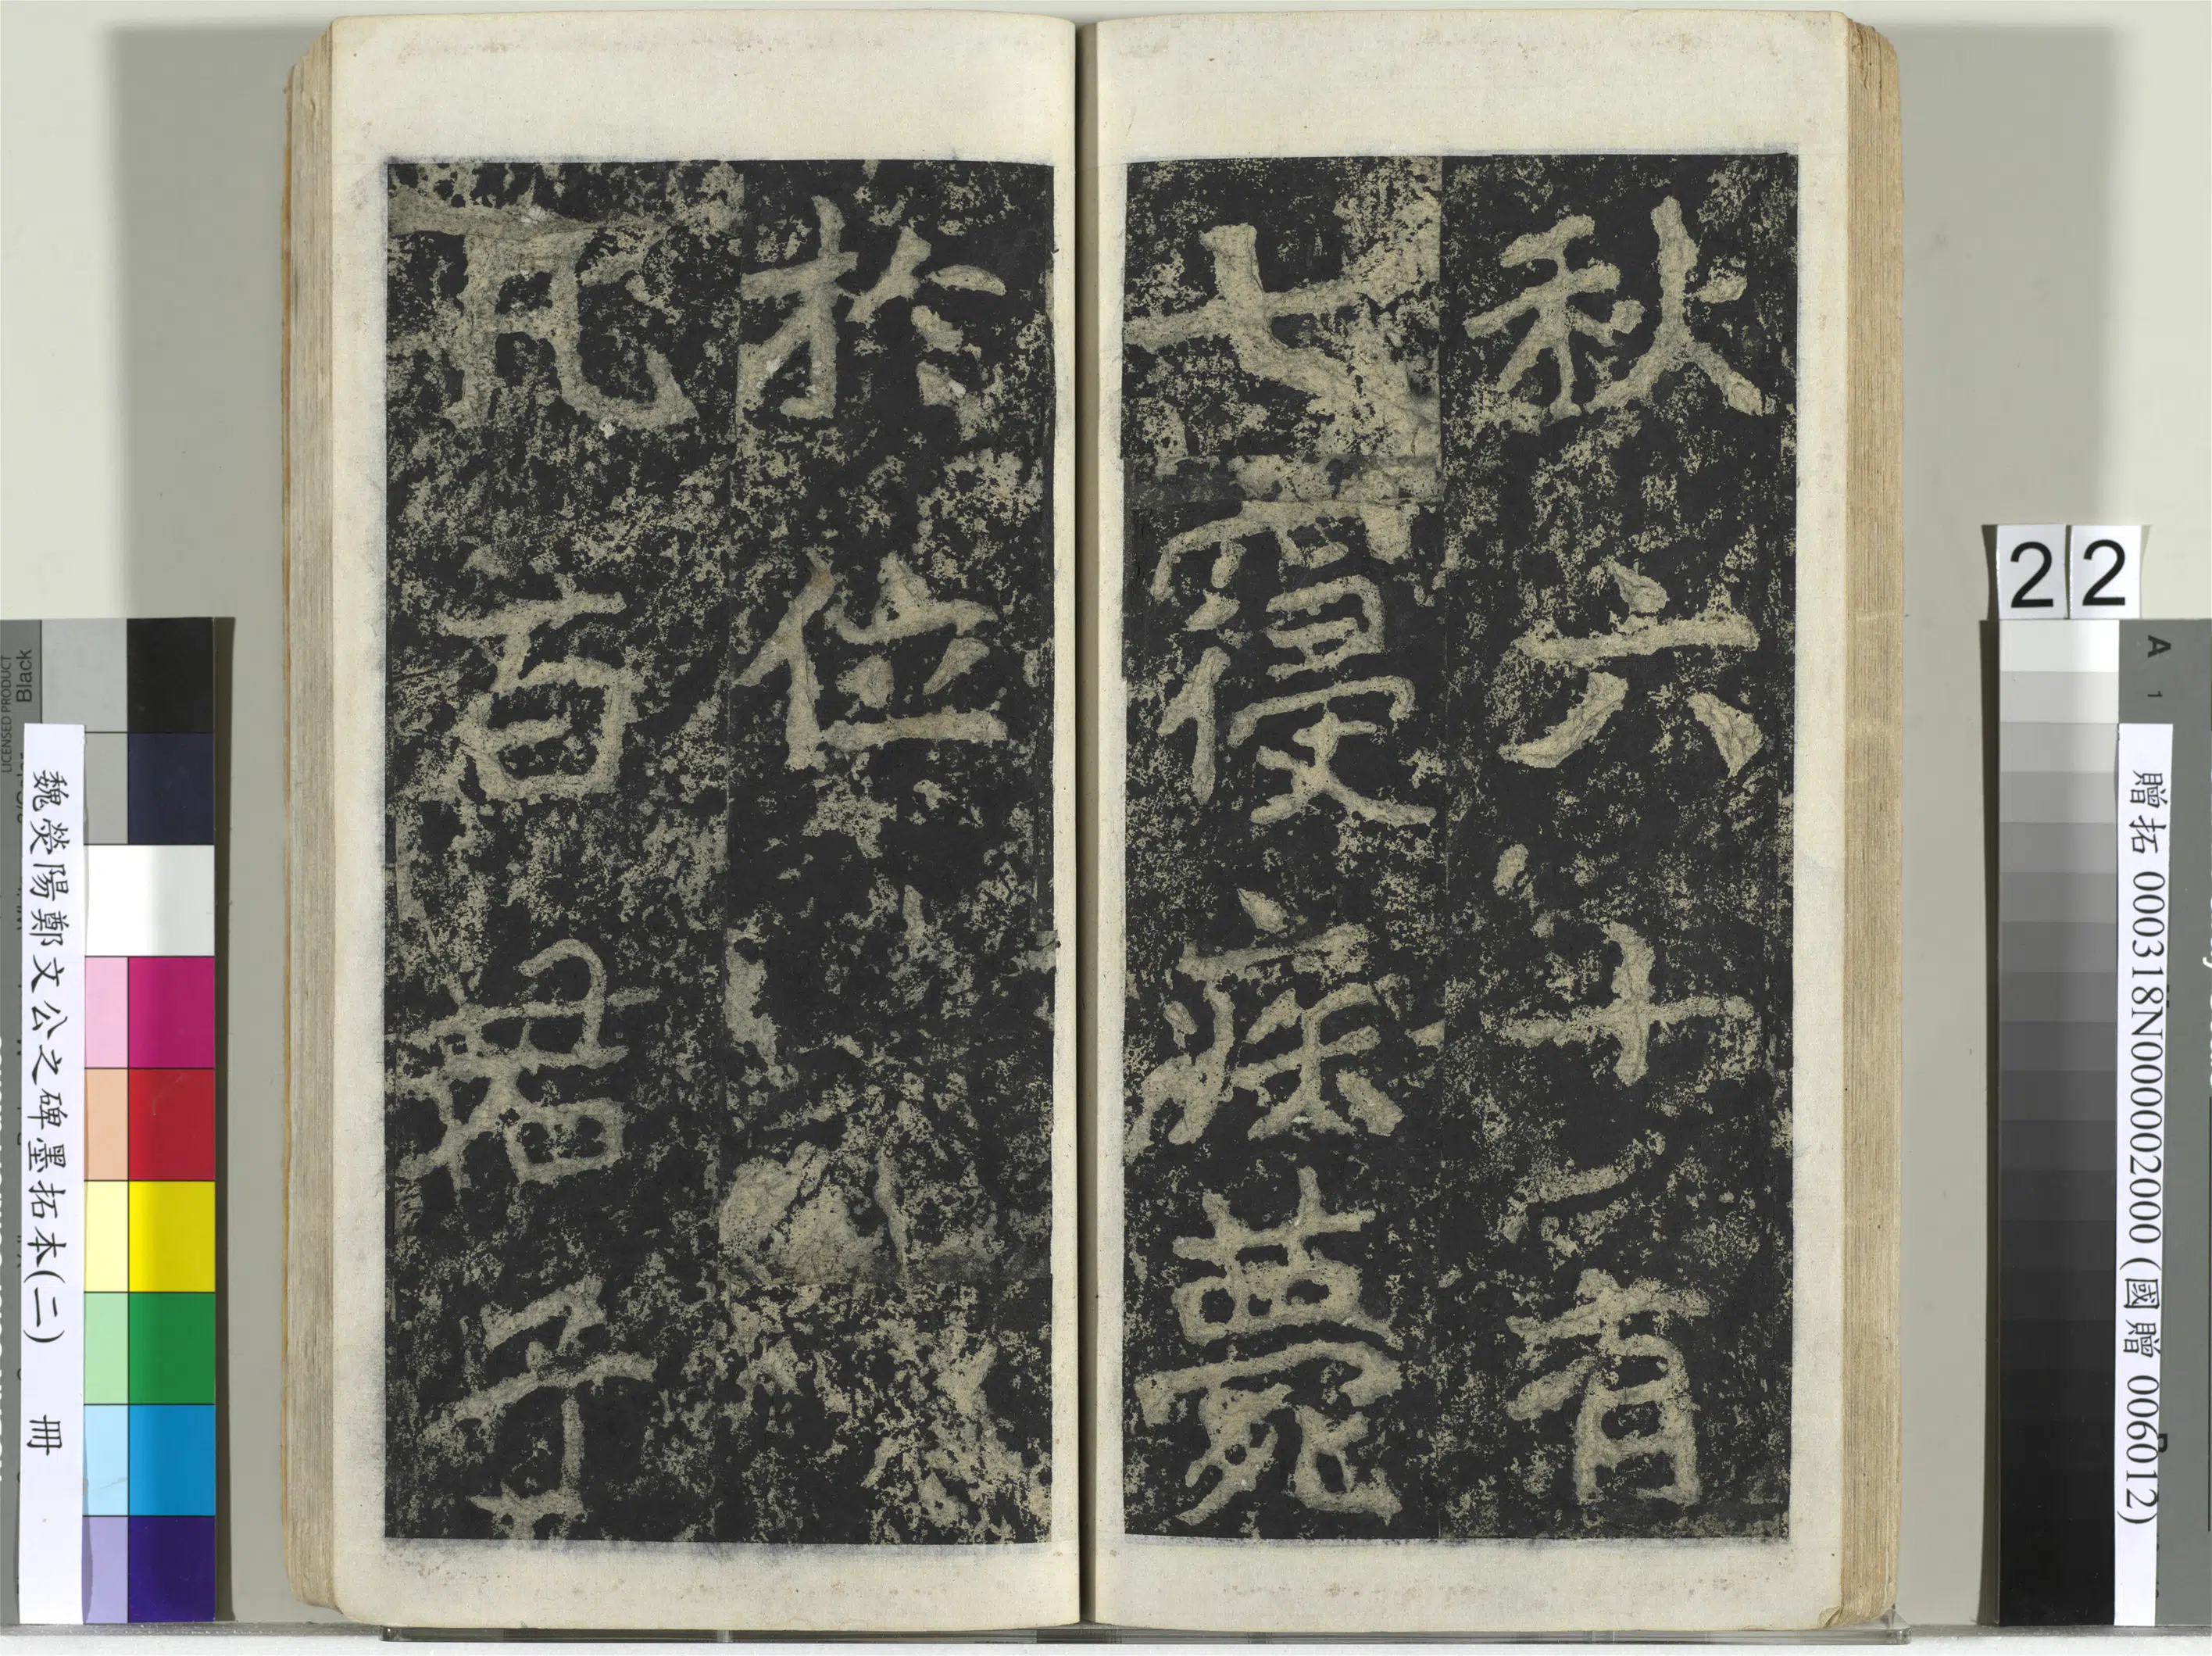 秋六十有
七寢疾薨
於位
凡百君子
22
魏滎陽鄭文公之碑墨拓本(二) 冊
贈拓 000318N000002000 (國贈 006012)
LICENSED PRODUCT
Black
A
1